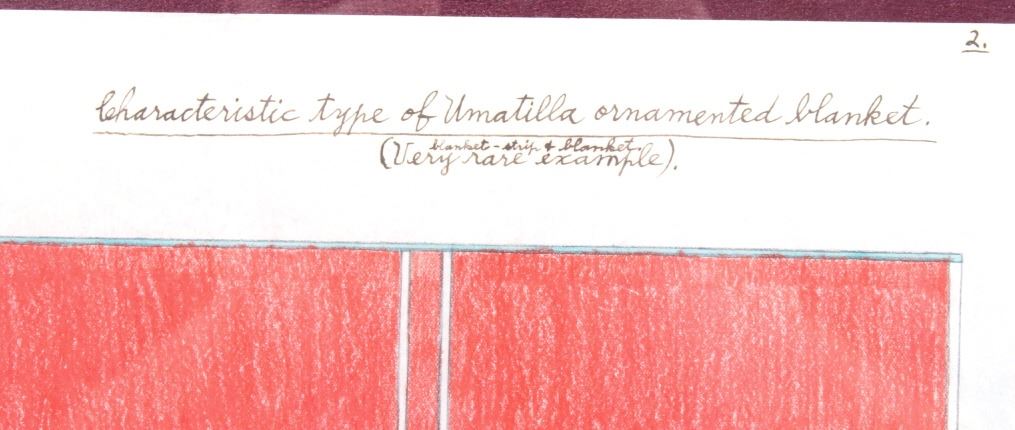 2.
Characteristic type of Umatilla ornamented blanket.
blanket-strip & blanket.
(Very rare example).